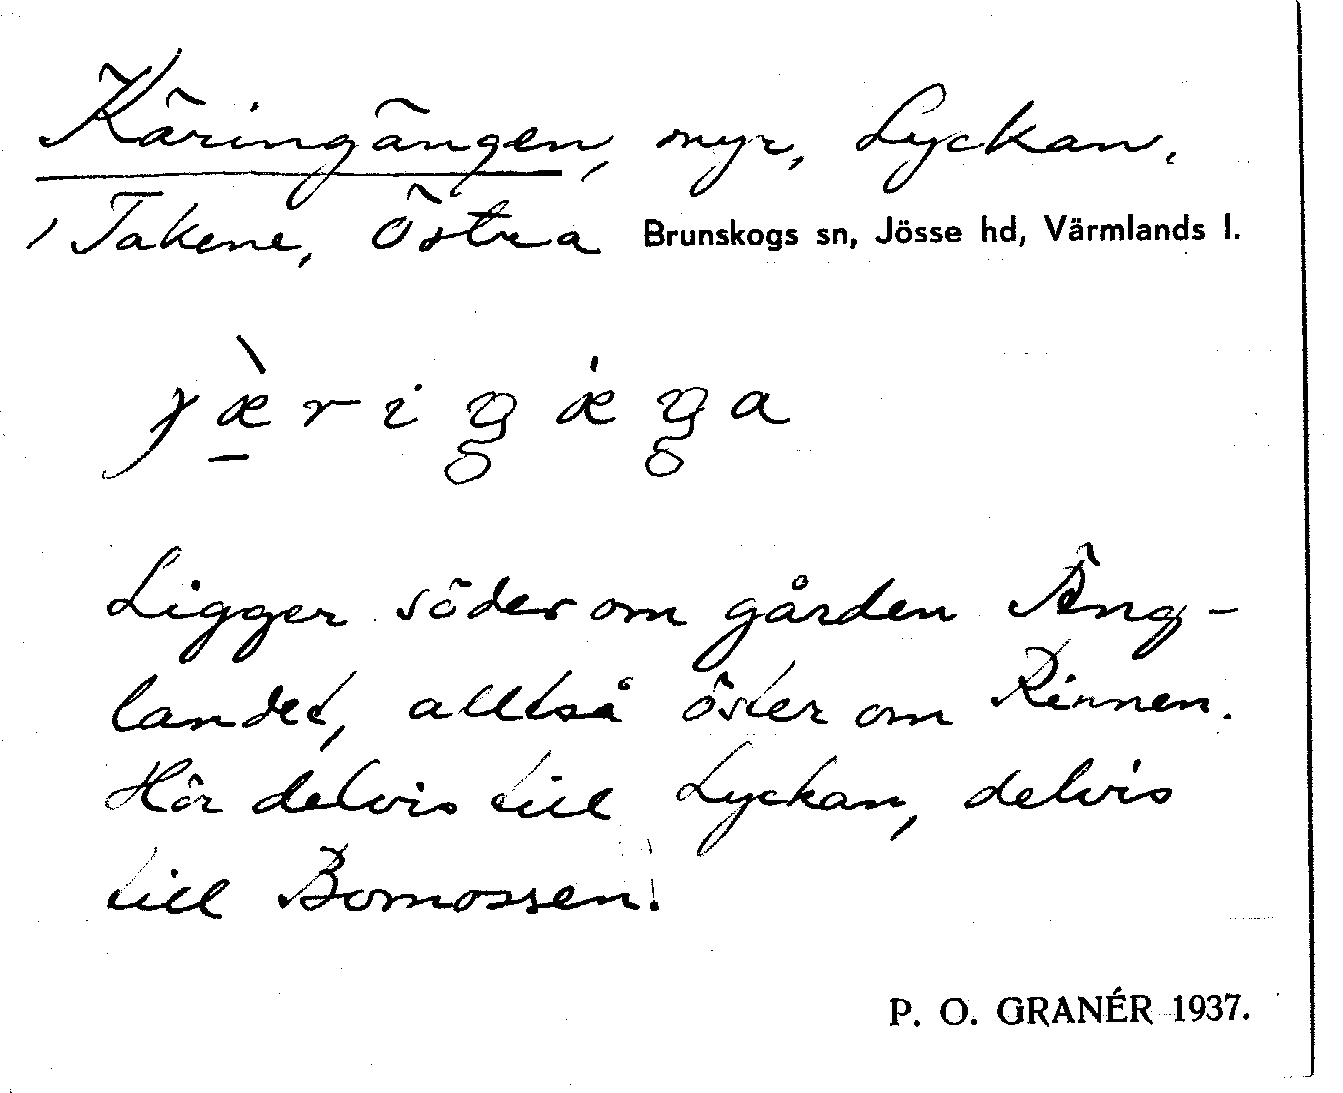 Käringängen, myr, Lyckan.
/ Takene, Östra Brunskogs sn, Jösse hd, Värmlands l.
Ligger söder om gården Äng-
landet, alltså öster om Rinnen.
Hör delvis till Lyckan, delvis
till Bomossen.
P. O. GRANÉR 1937.